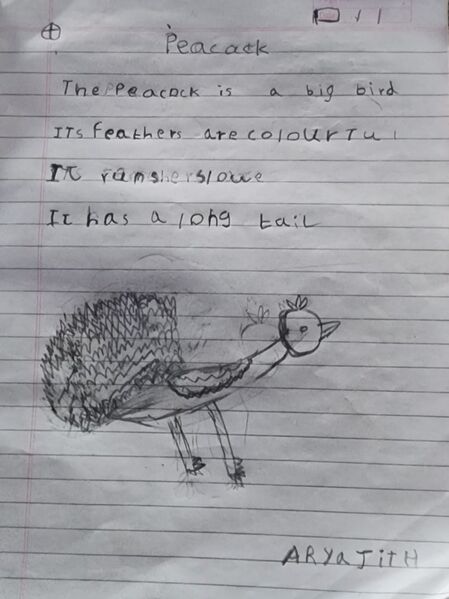 Peacack
The Peacock is a big bird
ITs feathers are colourful
It
It has a long tail
ARYaJitH